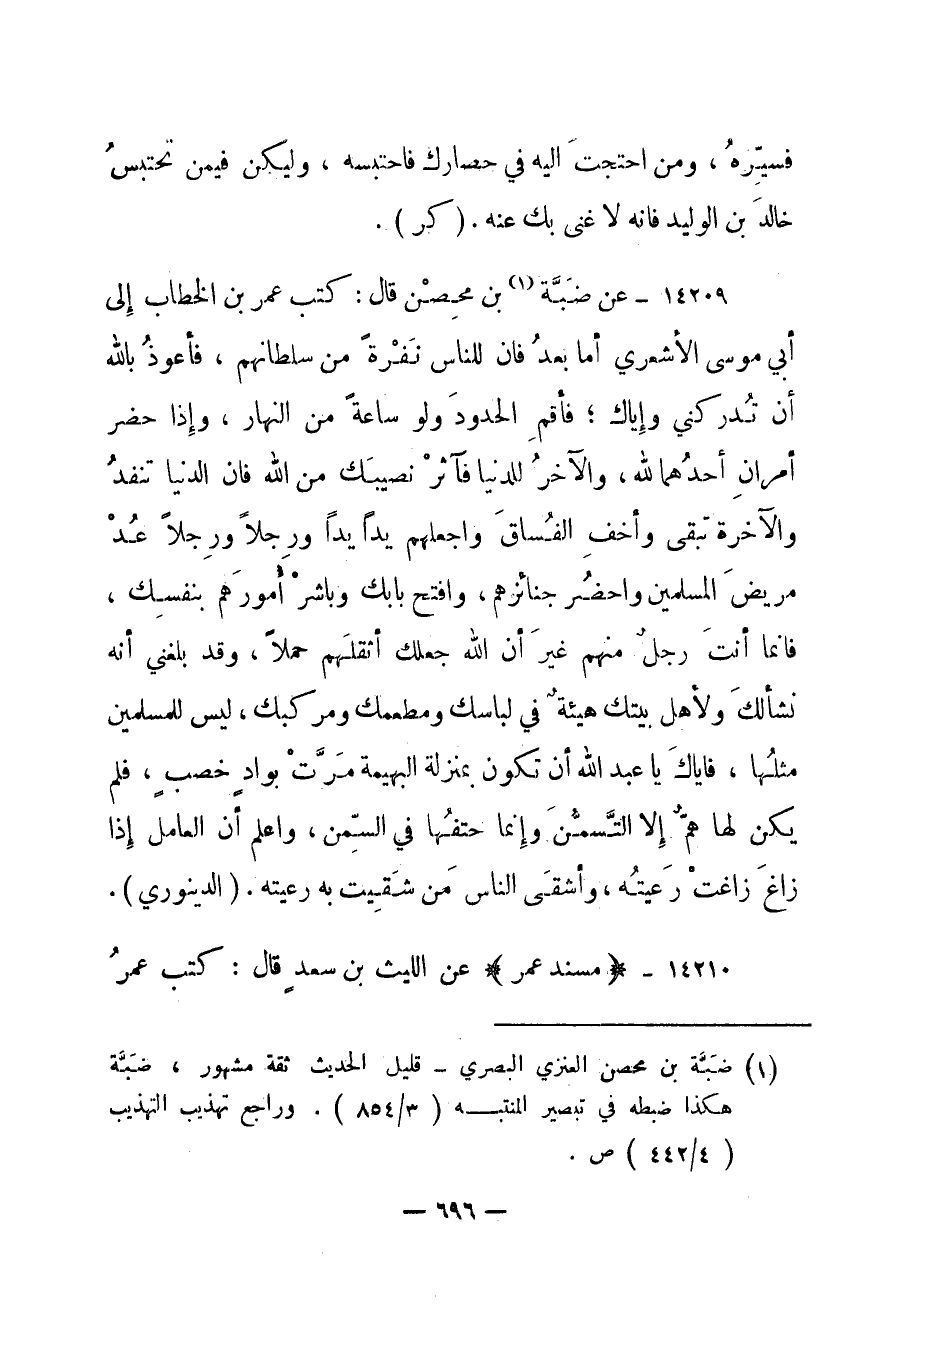 فسيِّرهُ ، ومن احتجتَ اليه في حصارك فاحتبسه ، وليكن فيمن تحتبسُ
خالدَ بن الوليد فانه لا غنى بك عنه . ( كر ) .
١٤٢٠٩ ـ عن ضَبَّة (١) بن محصِنْ قال : كتب عمر بن الخطاب إلى
أبي موسى الأشعري أما بعدُ فان للناس نَفْرةً من سلطانهم ، فأعوذُ بالله
أن تُدركني وإياك ؛ فأقمِ الحدودَ ولو ساعةً من النهار ، وإذا حضر
أمرانِ أحدُهما لله ، والآخرُ للدنيا فآثرْ نصيبَك من الله فان الدنيا تنفدُ
والآخرة تبقى وأخفِ الفُساقَ واجعلهم يداً يداً ورِجلاً ورِجلاً عُدْ
مريضَ المسلمين واحضُر جنائزهم ، وافتح بابك وباشرْ أمورَهم بنفسِك ،
فانما أنتَ رجلٌ منهم غيرَ أن الله جعلك أثقلَهم حملاً ، وقد بلغني أنه
نشألكَ ولأهل بيتك هيئةٌ في لباسك ومطعمك ومركبك ، ليس للمسلمين
مثلُها ، فاياكَ يا عبد الله أن تكون بمنزلة البهيمة مَرَّتْ بوادٍ خصبٍ ، فلم
يكن لها همٌّ إلا التَّسمُّنَ وإنما حتفُها في السِّمن ، واعلم أن العامل إذا
زاغَ زاغتْ رَعيتُه ، وأشقَى الناس مَن شَقِيت به رعيته . ( الدينوري ) .
١٤٢١٠ ـ ﴿ مسند عمر ﴾ عن الليث بن سعدٍ قال : كتب عمرُ
(١) ضَبَّة بن محصن العنزي البصري ـ قليل الحديث ثقة مشهور ، ضَبَّة
هكذا ضبطه في تبصير المنتبـــه ( ٨٥٤/٣ ) . وراجع تهذيب التهذيب
( ٤٤٢/٤ ) ص .
— ٦٩٦ —